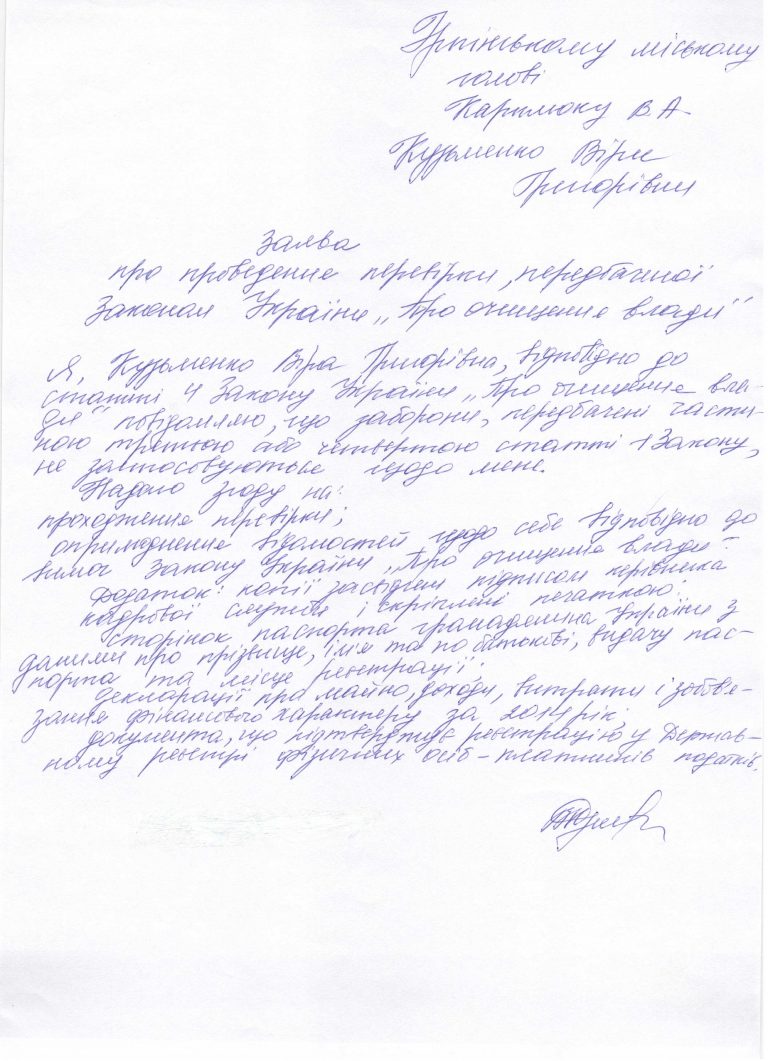 Ірпінському міському
голові
Карплюку В.А
Кузьменко Віри
Григорівни
Заява
про проведення перевірки, передбаченої
Законом України „Про очищення влади"
Я, Кузьменко Віра Григорівна, відповідно до
статті 4 Закону України „Про очищення вла-
ди" повідомляю, що заборони, передбачені части-
ною третьою або четвертою статті 1 Закону,
не застосовуються щодо мене.
Надаю згоду на:
проходження перевірки;
оприлюднення відомостей щодо себе відповідно до
вимог Закону України „Про очищення влади".
Додаток: копії засвідчені підписом керівника
кадрової служби і скріплені печаткою:
сторінок паспорта громадянина України з
даними про прізвище, ім'я та по батькові, видачу пас-
порта та місце реєстрації.
декларації про майно, доходи, витрати і зобов'я-
зання фінансового характеру за 2014 рік;
документа, що підтверджує реєстрацію у Держав-
ному реєстрі фізичних осіб-платників податків.